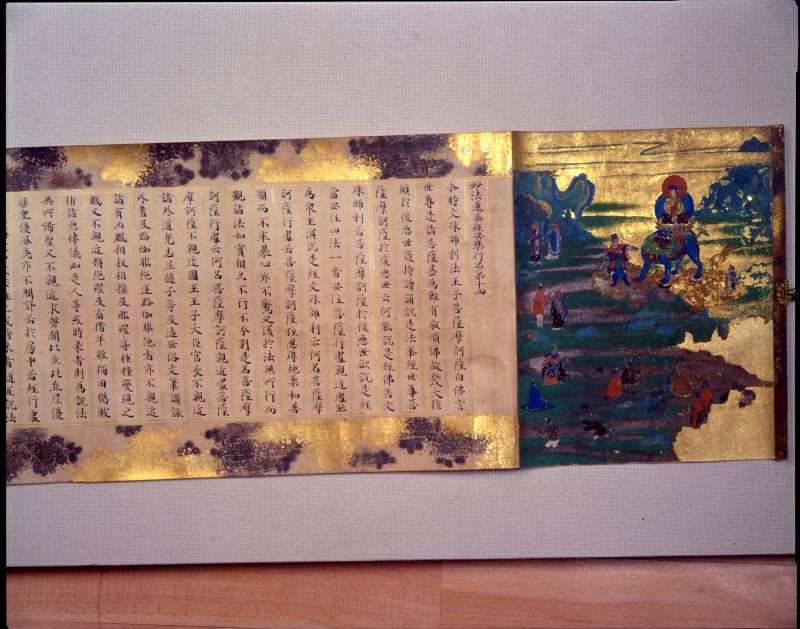 妙法蓮華經安樂行品第十四
尒時文殊師利法王子菩薩摩訶薩白佛言
世尊是諸菩薩甚為難有敬順佛故發大誓
願於後惡世護持讀誦說是法華經世尊菩
薩摩訶薩於後惡世云何能說是經佛告文
殊師利若菩薩摩訶薩於後惡世欲說是經
當安住四法一者安住菩薩行處親近處能
為眾生演說是經文殊師利云何名菩薩摩
訶薩行處若菩薩摩訶薩住忍辱地柔和善
順而不卒暴心亦不驚又復於法無所行而
觀諸法如實相亦不行不分別是名菩薩摩
訶薩行處云何名菩薩摩訶薩親近處菩薩
摩訶薩不親近國王王子大臣官長不親近
諸外道梵志尼揵子等及造世俗文筆讚詠
外書及路伽耶陀逆路伽耶陀者亦不親近
諸有凶戲相扠相撲及那羅等種種變現之
戲又不親近旃陀羅及畜猪羊雞狗田獦漁
捕諸惡律儀如是人等或時來者則為說法
無所悕望又不親近求聲聞比丘比丘尼優
婆塞優婆夷亦不問訊若於房中若經行處
止或時來者隨宜說法